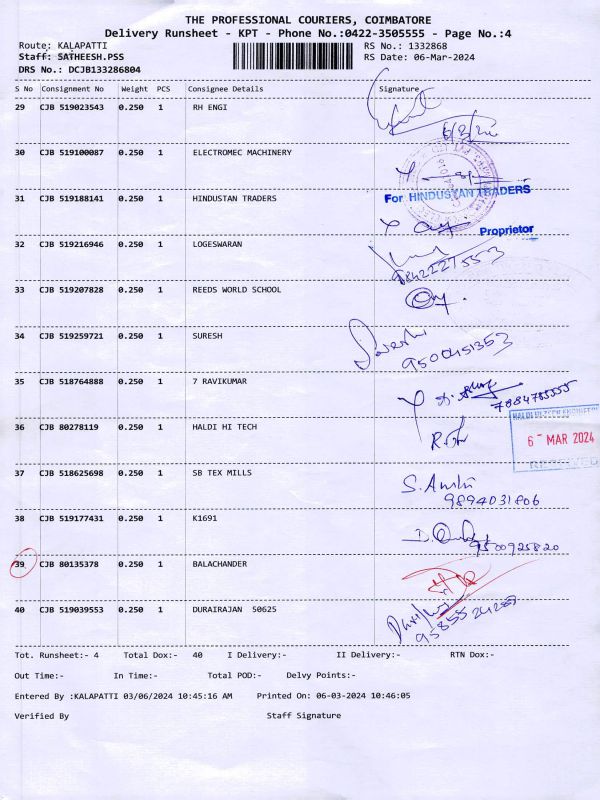 THE PROFESSIONAL COURIERS, COIMBATORE
Delivery Runsheet - KPT - Phone No.:0422-3505555 - Page No.:4
Route: KALAPATTI RS No.: 1332868
Staff: SATHEESH.PSS RS Date: 06-Mar-2024
DRS No.: DCJB133286804
S No Consignment No Weight PCS Consignee Details Signature
29 CJB 519023543 0.250 1 RH ENGI
30 CJB 519100087 0.250 1 ELECTROMEC MACHINERY
31 CJB 519188141 0.250 1 HINDUSTAN TRADERS For HINDUSTAN TRADERS
Proprietor
32 CJB 519216946 0.250 1 LOGESWARAN
9842227553
33 CJB 519207828 0.250 1 REEDS WORLD SCHOOL
34 CJB 519259721 0.250 1 SURESH
9500451353
35 CJB 518764888 0.250 1 7 RAVIKUMAR
36 CJB 80278119 0.250 1 HALDI HI TECH
6 - MAR 2024
RECEIVED
37 CJB 518625698 0.250 1 SB TEX MILLS
9894031806
38 CJB 519177431 0.250 1 K1691
9500925820
39 CJB 80135378 0.250 1 BALACHANDER
40 CJB 519039553 0.250 1 DURAIRAJAN 50625
Tot. Runsheet:- 4 Total Dox:- 40 I Delivery:- II Delivery:- RTN Dox:-
Out Time:- In Time:- Total POD:- Delvy Points:-
Entered By :KALAPATTI 03/06/2024 10:45:16 AM Printed On: 06-03-2024 10:46:05
Verified By Staff Signature